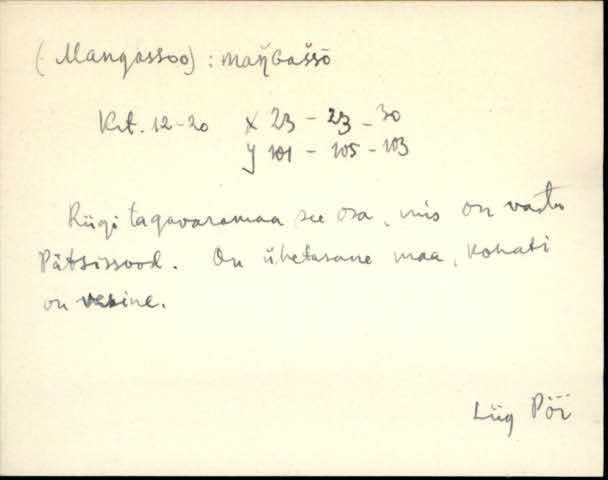 (Mangassoo) : maŋ̆Gašsō
Krt. 12-20 X 23 - 23 - 30
Y 101 - 105 - 103
Riigi tagavaramaa see osa, mis on vastu
Pätsissood. On ühetasane maa, kohati
on vesine.
Liig Pöi